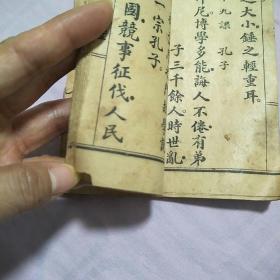 之大小錘之輕重耳
九課 孔子
尼博學多能誨人不倦有弟
子三千餘人時世亂
一宗孔子
國競事征伐人民